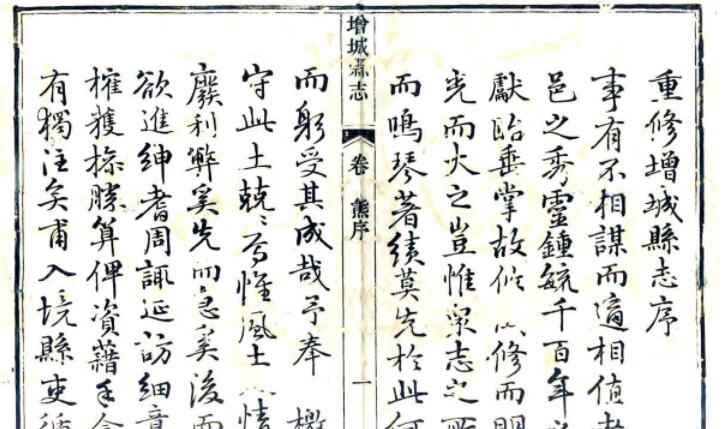 重修增城縣志序
事有不相謀而適相值者
邑之秀靈鍾毓千百年
獻貽垂掌故從以修而明
光而大之豈惟泉志之
而鳴琴著績莫先於此何
增城縣志
卷
熊序
一
而躬受其成哉予奉 檄
守此土兢兢焉惟風土人情
廢利弊奚先而急奚後而
欲進紳耆周諏延訪細音
權獲操勝算俾資藉手
有獨注矣甫入境縣吏循